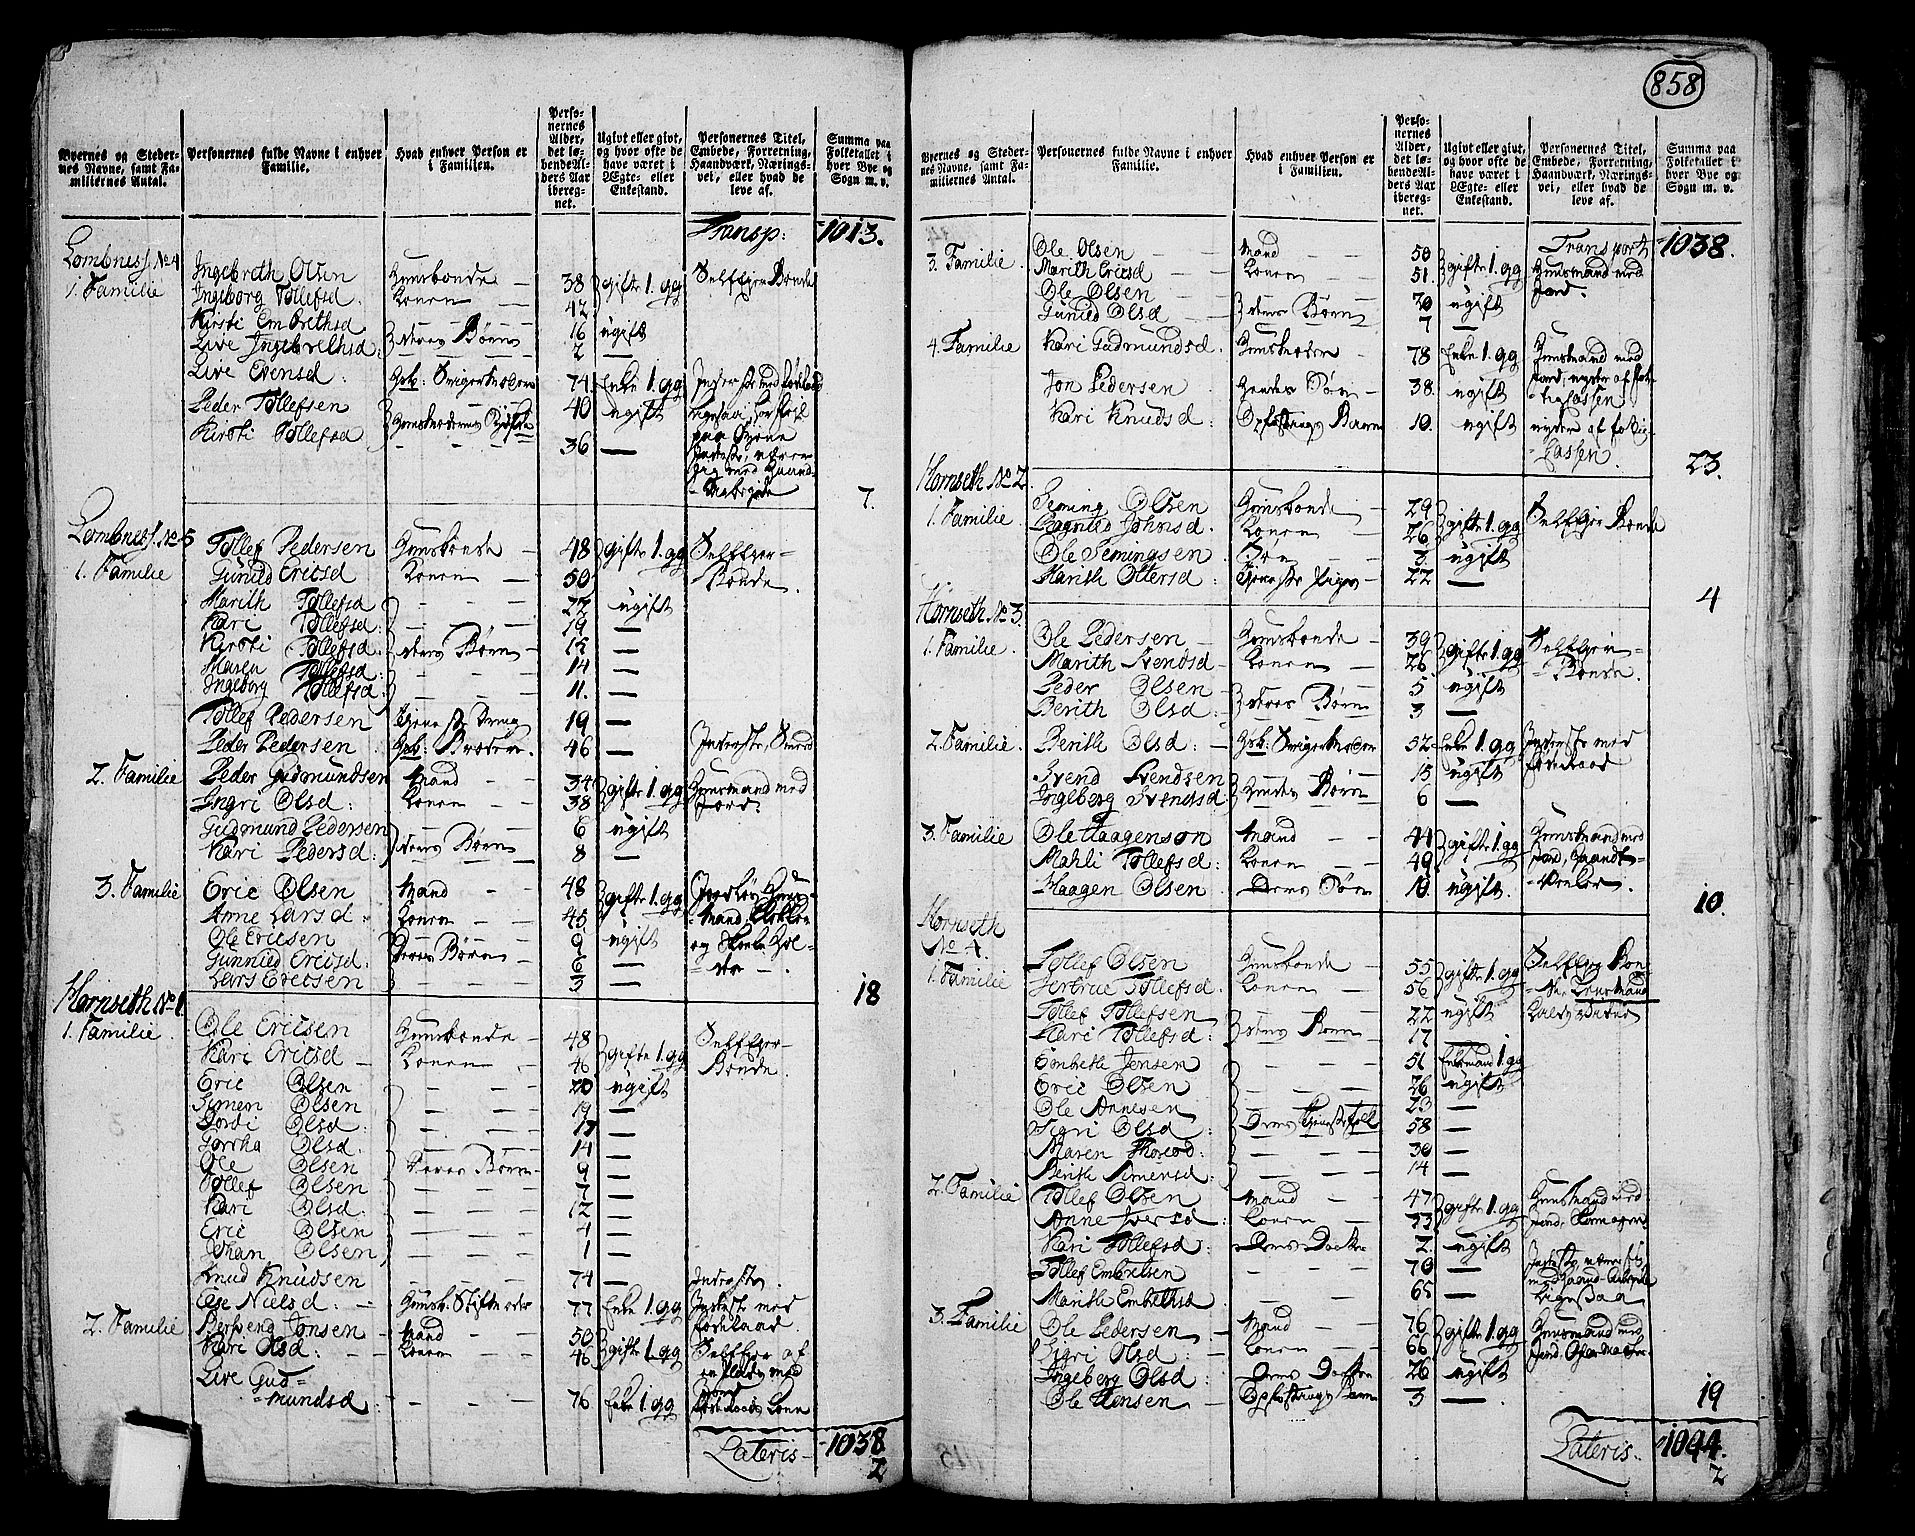 858
Byernes og Steder-
nes Navne, samt Fa-
miliernes Antal.
Personernes fulde Navne i enhver
Familie.
Hvad enhver Person er
i Familien.
Perso-
nernes
Alder,
det lø-
bende Al-
ders Aar
ibereg-
net.
Ugivt eller givt,
og hvor ofte de
have været i
Ægte- eller
Enkestand.
Personernes Titel,
Embede, Forretning,
Haandværk, Nærings-
vei, eller hvad de
leve af.
Summa paa
Folketallet i
hver Bye og
Sogn m. v.
Transp: 1013.
Lombness. No 4
1. Familie
Ingebreth Olsen Huusbonde 38 gifte 1. gg Selfeger Bonde
Ingeborg Tollefsd. Konen 42
Kirsti Embrethsd 16 ugift
Live Ingebrethsd. deres Børn 2 —
Live Evensd. Hsb: Svigermoder 74 Enke 1. gg Inderste med
Peder Tollefsen 40 ugift
Kirsti Tollefsd 36 —
7.
Lombness. No 5
1. Familie
Tollef Pedersen Huusbonde 48 gifte 1. gg Selfeger-
Gunild Ericsd Konen 50 Bonde
Marith Tollefsd 22 ugift
Kari Tollefsd. 19 —
Kirsti Tollefsd. deres Børn —
Maren Tollefsd. 14 —
Ingeborg Tollefsd. 11. —
Tollef Pedersen Tjeneste Dreng 19 —
Peder Pedersen Hsb: Broder 46 — Inderste, Smed
2. Familie Peder Gudmundsen Mand 34 gifte 1. gg Huusmand med
Ingri Olsd: Konen 38 Jord.
Gudmund Pedersen 6 ugift
Kari Pedersd. deres Børn 8 —
3. Familie Eric Olsen Mand 48 gifte 1. gg
Anne Larsd. Konen 45 Mand, Klokker
Ole Ericsen 9 ugift og Skole Hol-
Gunnild Ericsd. Deres Børn 6 — der
Lars Ericsen 3 —
18
Hornseth No 1
1. Familie
Ole Ericsen Huusbonde 48 gifte 1. gg Selfeger-
Kari Ericsd Konen 46 Bonde.
Eric Olsen 20 ugift
Simen Olsen 19 —
Olsd. 17 —
Olsd. 14 —
Ole Olsen Deres Børn 9 —
Tollef Olsen 7 —
Kari Olsd. 12 —
Eric Olsen 4 —
Johan Olsen 1 —
Knud Knudsen 74 — Inderste.
Else Nielsd. Huusb. Stifmoder 77 Enke 1. gg Inderste med
Føderaad.
2. Familie Jonsen Mand 50 gifte 1. gg Selfeger af
Kari Olsd. Konen 46
Live Gud-
mundsd 76 Enke 1. gg
Lateris 1038
2
Byernes og Steder-
nes Navne, samt Fa-
miliernes Antal.
Personernes fulde Navne i enhver
Familie.
Hvad enhver Person er
i Familien.
Perso-
nernes
Alder,
det lø-
bende Al-
ders Aar
ibereg-
net.
Ugivt eller givt,
og hvor ofte de
have været i
Ægte- eller
Enkestand.
Personernes Titel,
Embede, Forretning,
Haandværk, Nærings-
vei, eller hvad de
leve af.
Summa paa
Folketallet i
hver Bye og
Sogn m. v.
Transport 1038.
3. Familie Ole Olsen Mand 50 gifte 1. gg Huusmand med
Marith Ericsd Konen 51 Jord.
Ole Olsen 20 ugift
Gunild Olsd deres Børn 7 —
4. Familie Kari Gudmundsd. Huusmoder 78 Enke 1. gg Huusmand med
Jon Pedersen Hendes Søn 38. ugift
Kari Knudsd. Opfostrings Barn 10. ugift nyder af Fattig-
Cassen.
23.
Hornseth No 2
1. Familie
Seming Olsen Huusbonde 29 gifte 1. gg Selfeger Bonde
Ragnild Johnsd. Konen 26
Ole Semingsen Søn 3. ugift
Marith Ottersd. Tjeneste Pige 22 —
4
Hornseth No 3.
1. Familie
Ole Pedersen Huusbonde 39 gifte 1. gg Selfeger-
Marith Svendsd Konen 26 Bonde.
Peder Olsen 5 ugift
Berith Olsd. deres Børn 3 —
2. Familie. Berith Olsd: Hsb: Svigermoder 52 Enke 1. gg Inderste med
Svend Svendsen 15 ugift Føderaad
Ingeborg Svendsd. Hendes Børn 6 —
3. Familie Ole Haagenson Mand 44 gifte 1. gg Huusmand med
Mahli Tollefsd. Konen 49 Jord,
Haagen Olsen Deres Søn 10 ugift
10.
Hornseth
No 4.
1. Familie
Tollef Olsen Huusbonde 55 gifte 1. gg Selfeger Bon-
Tollefsd. Konen 56 de
Tollef Tollefsen 22 ugift
Kari Tollefsd. deres Børn 17 —
Embreth Jensen 51 Enkemand 1. gg
Eric Olsen 26 ugift
Ole Annesen 23 —
Sigri Olsd. Deres Tjenestefolk 58 —
Maren 30 —
Berith Simensd. 14 —
2. Familie Tollef Olsen Mand 47 gifte 1. gg Huusmand med
Anne Iversd. Konen 33 Jord, Skomager
Kari Tollefsd. Deres Datter 2. ugift
Tollef Embretsen 70 —
Marith Embrethsd 65 —
3. Familie Ole Pedersen Mand 76 gifte 1. gg Huusmand med
Sigri Olsd. Konen 66
Ingeborg Olsd. Deres Datter 26 ugift
Ole Hensen Opfostrings Barn 3 —
19
Lateris 1094.
2